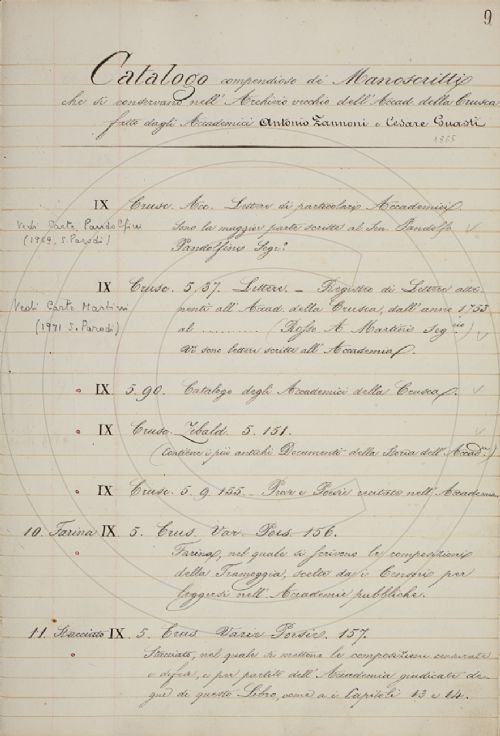 9
Catalogo compendioso de' Manoscritti
che si conservano nell'Archivio vecchio dell'Accad. della Crusca
fatto dagli Accademici Antonio Zannoni e Cesare Guasti
IX Crusc. Acc. Lettere di particolari Accademici.
Vedi Carte Pandolfini
Sono la maggior parte scritte al Sen. Pandolfo
(1969, S. Parodi)
Pandolfini Segr.º
IX Crusc. 5. 37. Lettere. - Registro di Lettere atte-
Vedi Carte Martini
nenti all'Accad. della Crusca, dall'anno 1753
(1971 S. Parodi)
al .......... (Rosso A. Martini Seg.rio)
Vi sono lettere scritte all'Accademia.
IX 5. 90. Catalogo degli Accademici della Crusca.
IX Crusc. Zibald. 5. 151.
(Contiene i più antichi Documenti della Storia dell'Accad.)
IX Crusc. 5. 9. 155. - Prose e Poesie recitate nell'Accademia
10. Farina IX 5. Crus. Var. Poes. 156.
Farina, nel quale si scrivono le composizioni
della Tramoggia, scelte da i Censori per
leggersi nell'Accademie pubbliche.
11. Stacciato IX. 5. Crus. Varie Poesie. 157.
Stacciato, nel quale si mettono le composizioni censurate
e difese, e per partito dell'Accademia giudicate de-
gne di questo Libro, come a i Capitoli 13 e 14.